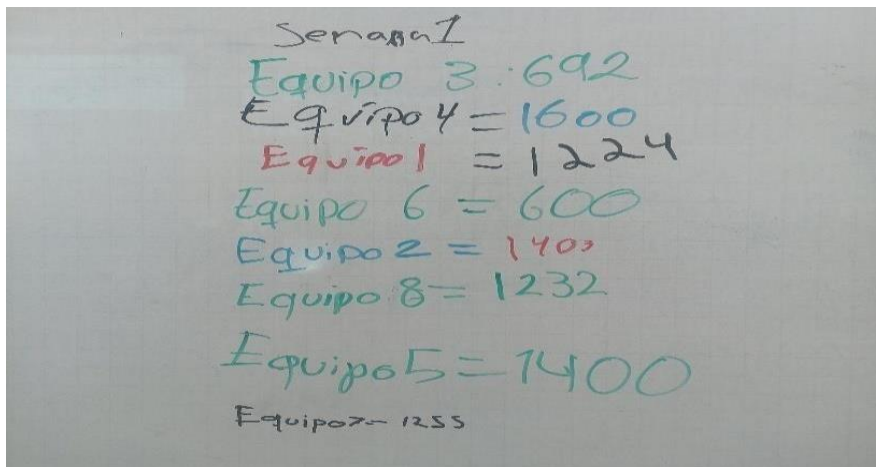 Semana 1
Equipo 3 : 692
Equipo 4 = 1600
Equipo 1 = 1224
Equipo 6 = 600
Equipo 2 = 1400
Equipo 8 = 1232
Equipo 5 = 1400
Equipo 7 = 1255